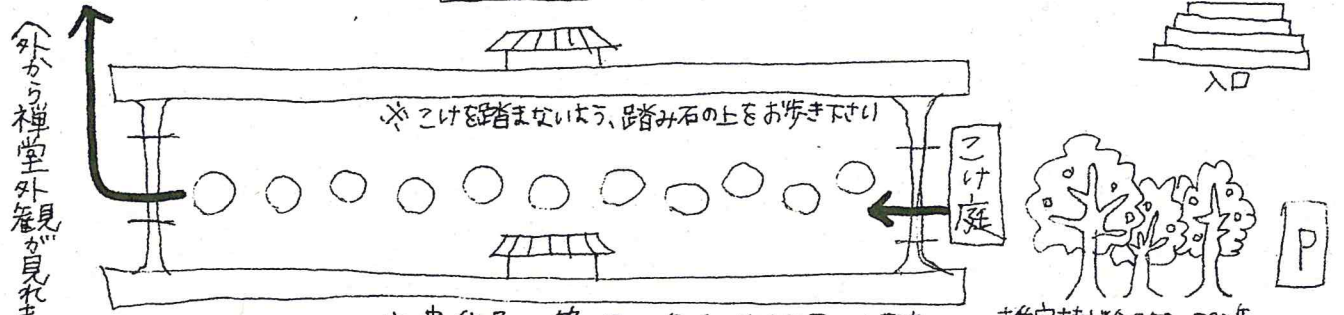 (外から禅堂外観が見れま
※こけを踏まないよう、踏み石の上をお歩き下さい
こけ庭
入口
P